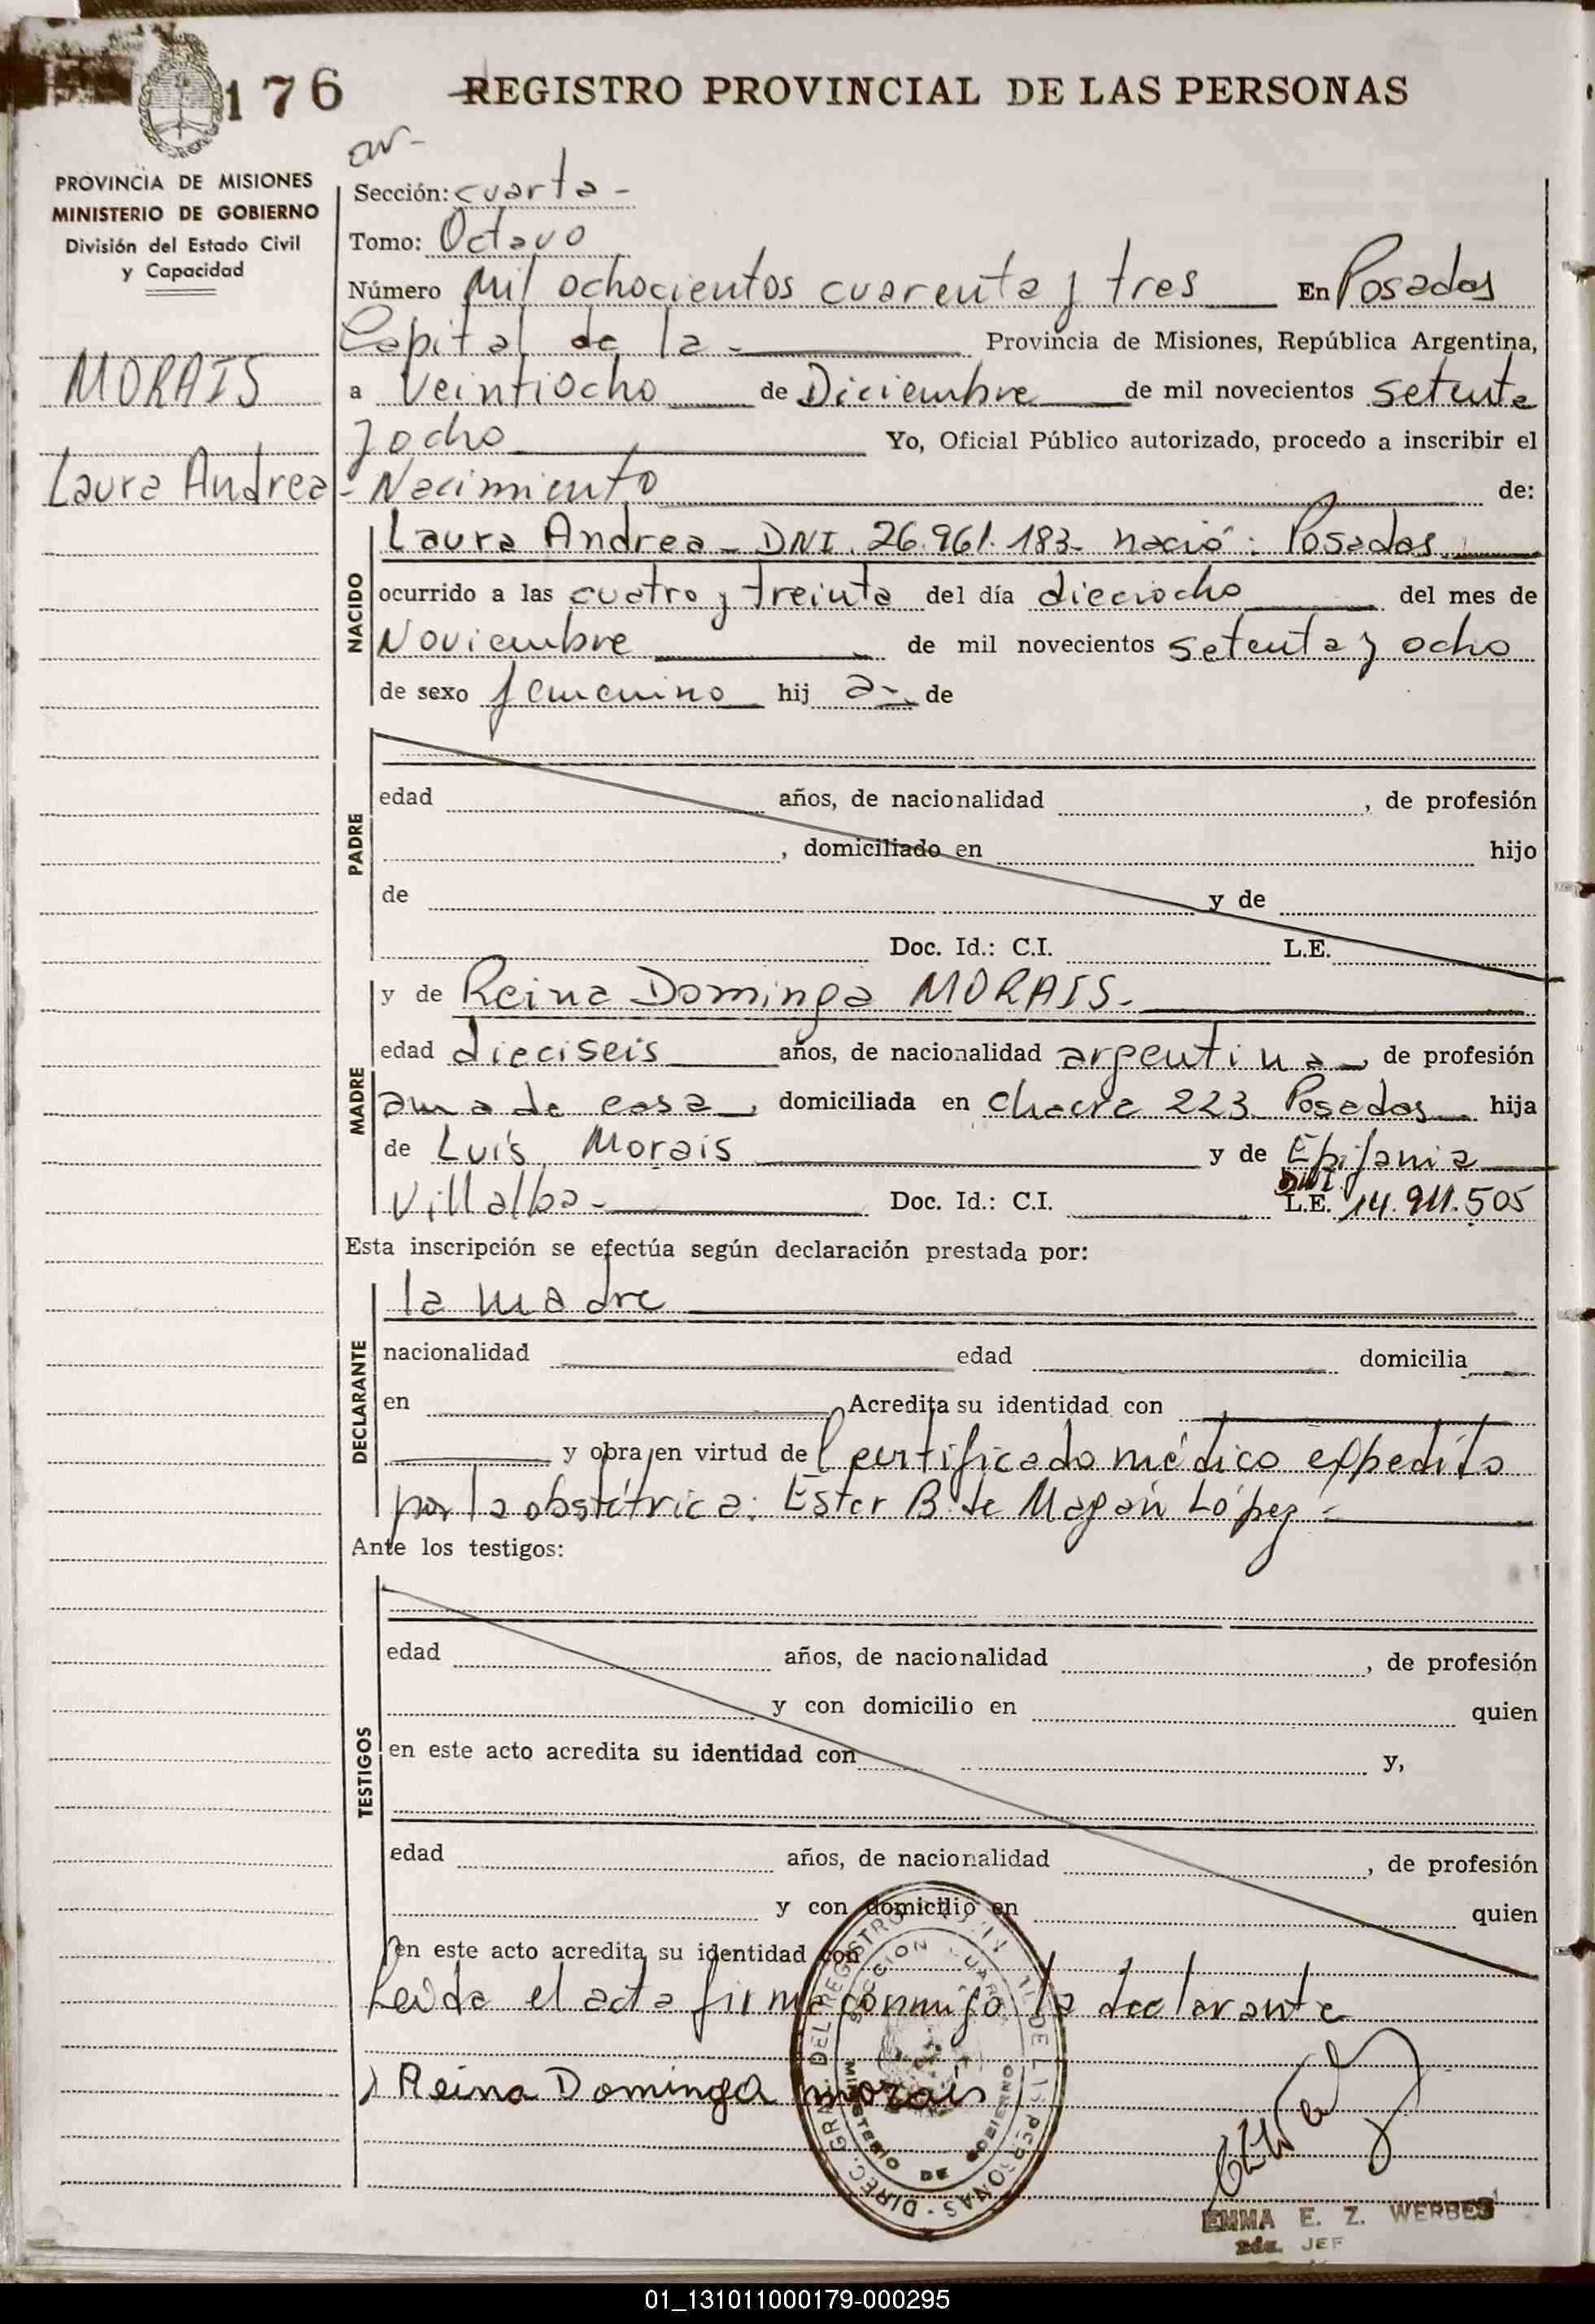 176
REGISTRO PROVINCIAL DE LAS PERSONAS
PROVINCIA DE MISIONES
MINISTERIO DE GOBIERNO
División del Estado Civil
y Capacidad
MORAIS
Laura Andrea
Sección: cuarta -
Tomo: Octavo
Número Mil ochocientos cuarenta y tres En Posadas
Capital de la - Provincia de Misiones, República Argentina,
a Veintiocho de Diciembre de mil novecientos setenta
y ocho Yo, Oficial Público autorizado, procedo a inscribir el
- Nacimiento de:
NACIDO
Laura Andrea - DNI. 26.961.183 - nació: Posadas
ocurrido a las cuatro y treinta del día dieciocho del mes de
Noviembre de mil novecientos setenta y ocho
de sexo femenino hij a - de
PADRE
edad años, de nacionalidad , de profesión
, domiciliado en hijo
de y de
Doc. Id.: C.I. L.E.
MADRE
y de Reina Dominga MORAIS. -
edad dieciseis años, de nacionalidad argentina, de profesión
ama de casa, domiciliada en chacra 223 Posadas hija
de Luis Morais y de Epifania
Villalba - Doc. Id.: C.I. DNI. L.E. 14.911.505
Esta inscripción se efectúa según declaración prestada por:
DECLARANTE
la madre
nacionalidad edad domicilia
en Acredita su identidad con
y obra en virtud de certificado médico expedido
por la obstétrica: Ester B. de Magán López -
Ante los testigos:
TESTIGOS
edad años, de nacionalidad , de profesión
y con domicilio en quien
en este acto acredita su identidad con y,
edad años, de nacionalidad , de profesión
y con domicilio en quien
en este acto acredita su identidad con
Leída el acta firma conmigo la declarante
Reina Dominga morais
DIREC. GRAL. DEL REGISTRO DE LAS PERSONAS
SECCION CUARTA
MINISTERIO DE GOBIERNO
EMMA E. Z. WERBES
2da. JEF
01_131011000179-000295